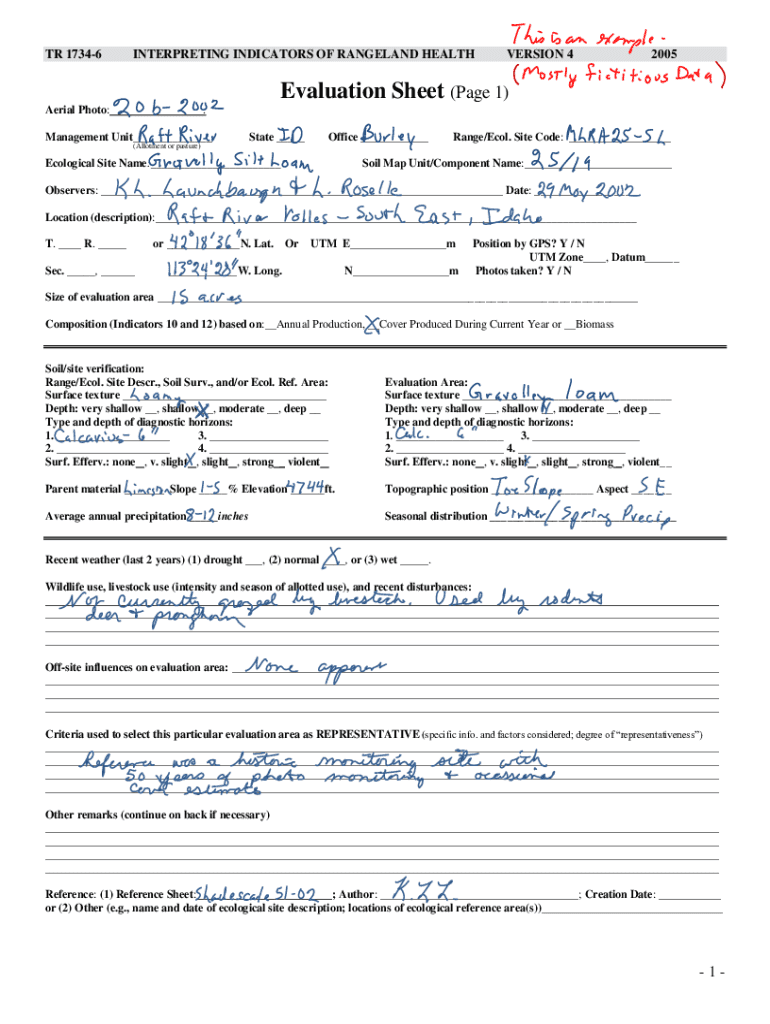 This is an example -
TR 1734-6 INTERPRETING INDICATORS OF RANGELAND HEALTH VERSION 4 2005
(Mostly fictitious Data)
Evaluation Sheet (Page 1)
Aerial Photo: 206-2002
Management Unit Raft River State ID Office Burley Range/Ecol. Site Code: MLRA25-SL
(Allotment or pasture)
Ecological Site Name: Gravolly Silt Loam Soil Map Unit/Component Name: 25/19
Observers: KL. Launchbaugh & L. Roselle Date: 29 May 2002
Location (description): Raft River Valles - South East, Idaho
T. ____ R. _____ or 42°18'36" N. Lat. Or UTM E__________________m Position by GPS? Y / N
UTM Zone____, Datum______
Sec. _____, ______ 113°24'28" W. Long. N__________________m Photos taken? Y / N
Size of evaluation area 15 acres
Composition (Indicators 10 and 12) based on: __Annual Production, X Cover Produced During Current Year or __Biomass
Soil/site verification:
Range/Ecol. Site Descr., Soil Surv., and/or Ecol. Ref. Area: Evaluation Area:
Surface texture Loamy Surface texture Gravolley loam
Depth: very shallow __, shallow X, moderate __, deep __ Depth: very shallow __, shallow X, moderate __, deep __
Type and depth of diagnostic horizons: Type and depth of diagnostic horizons:
1. Calcarius - 6" 3. ____ 1. Calc. 6" 3. ____
2. ____ 4. ____ 2. ____ 4. ____
Surf. Efferv.: none__, v. slight X, slight__, strong__ violent__ Surf. Efferv.: none__, v. slight X, slight__, strong__, violent__
Parent material Slope 1-5 % Elevation 4744 ft. Topographic position Toe Slope Aspect SE
Average annual precipitation 8-12 inches Seasonal distribution Winter/Spring Precip
Recent weather (last 2 years) (1) drought ___, (2) normal X, or (3) wet _____.
Wildlife use, livestock use (intensity and season of allotted use), and recent disturbances:
Not currently grazed by livestock. Used by rodents
deer & pronghorn
Off-site influences on evaluation area: None apparent
Criteria used to select this particular evaluation area as REPRESENTATIVE (specific info. and factors considered; degree of “representativeness”)
Reference was a historic monitoring site with
50 years of photo monitoring & ocassional
Cover estimate
Other remarks (continue on back if necessary)
Reference: (1) Reference Sheet: Shadescale SI-02; Author: ____; Creation Date: ____
or (2) Other (e.g., name and date of ecological site description; locations of ecological reference area(s))____
- 1 -